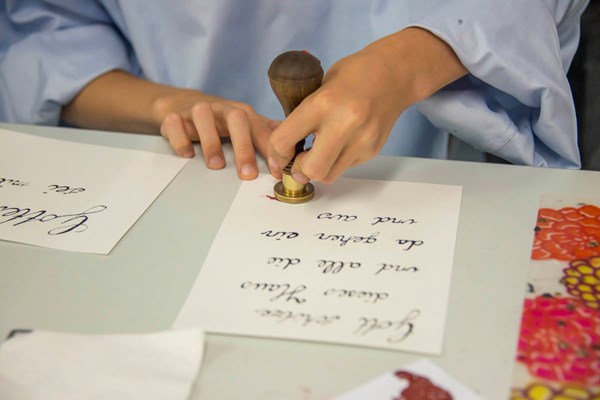 Gott schütze
dieses Haus
und alle die
da gehen ein
und aus
Gottes
sei mit